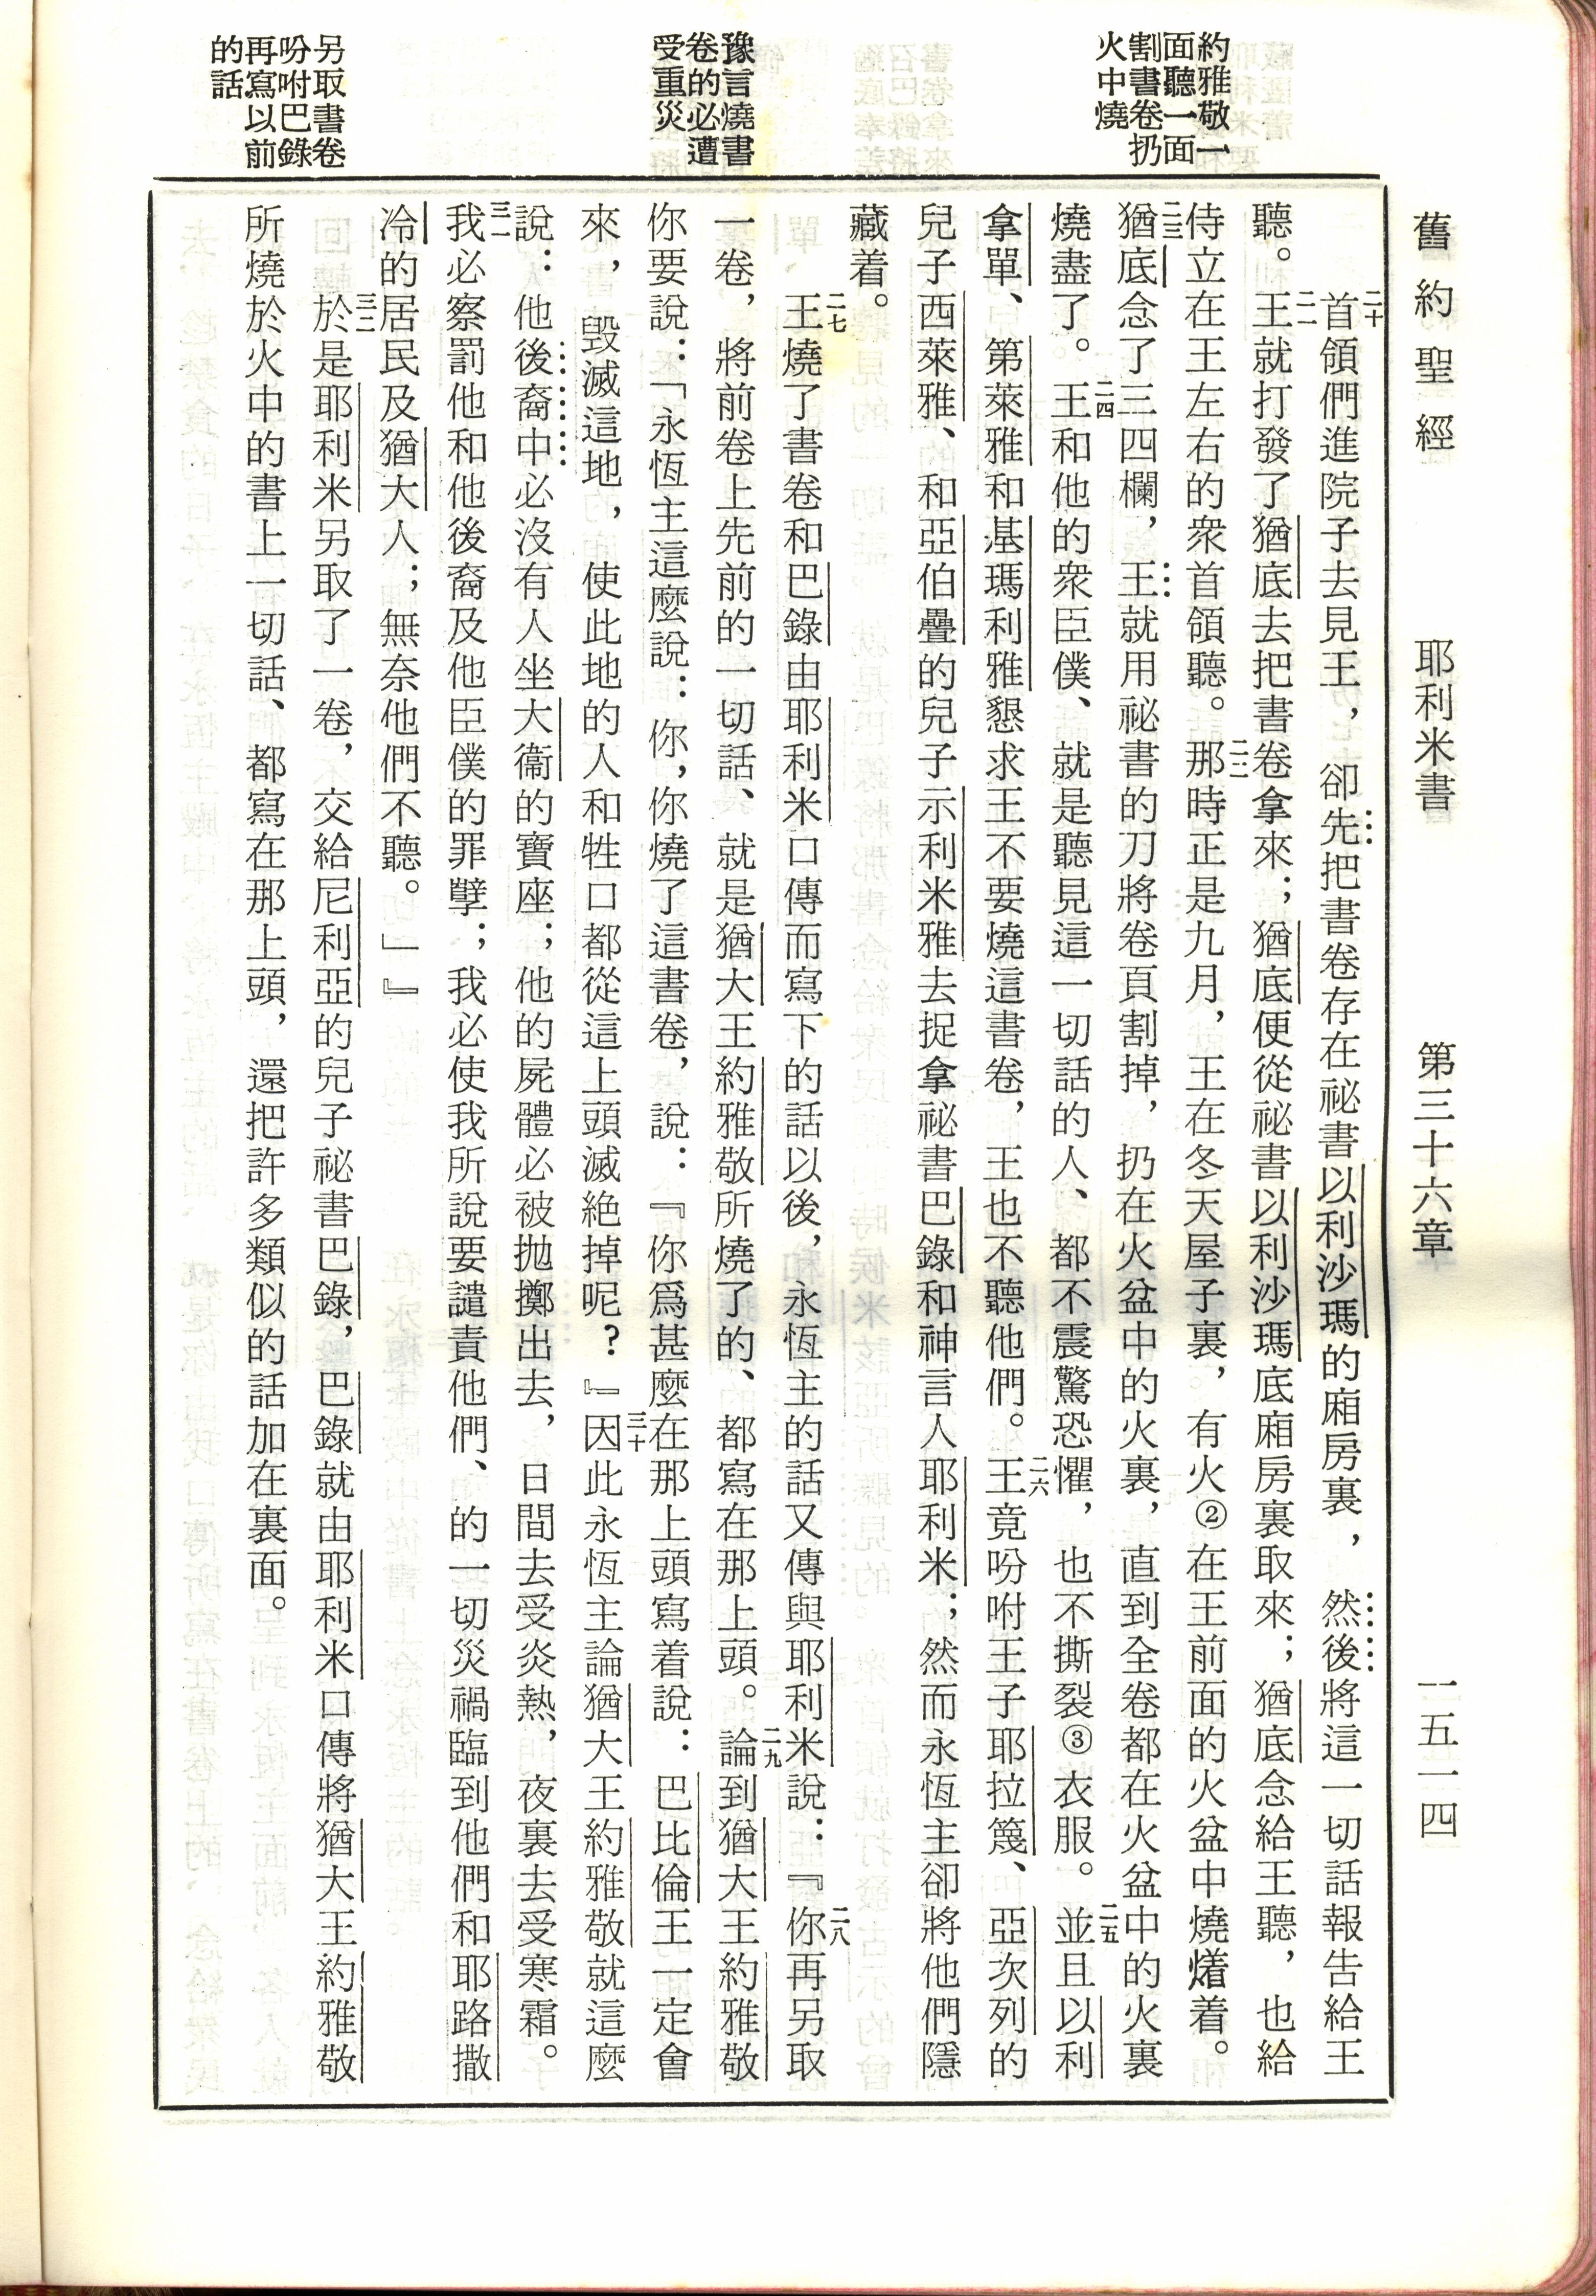 舊約聖經 耶利米書 第三十六章 一五一四
約雅敬一
面聽一面
割書卷扔
火中燒
豫言燒書
卷的必遭
受重災
另取書卷
吩咐巴錄
再寫以前
的話
二十首領們進院子去見王，卻先把書卷存在祕書以利沙瑪的廂房裏，然後將這一切話報告給王
聽。二一王就打發了猶底去把書卷拿來；猶底便從祕書以利沙瑪底廂房裏取來；猶底念給王聽，也給
侍立在王左右的衆首領聽。二二那時正是九月，王在冬天屋子裏，有火②在王前面的火盆中燒燃着。
二三猶底念了三四欄，王就用祕書的刀將卷頁割掉，扔在火盆中的火裏，直到全卷都在火盆中的火裏
燒盡了。二四王和他的衆臣僕、就是聽見這一切話的人、都不震驚恐懼，也不撕裂③衣服。二五並且以利
拿單、第萊雅和基瑪利雅懇求王不要燒這書卷，王也不聽他們。二六王竟吩咐王子耶拉篾、亞次列的
兒子西萊雅、和亞伯疊的兒子示利米雅去捉拿祕書巴錄和神言人耶利米；然而永恆主卻將他們隱
藏着。
二七王燒了書卷和巴錄由耶利米口傳而寫下的話以後，永恆主的話又傳與耶利米說：『二八你再另取
一卷，將前卷上先前的一切話、就是猶大王約雅敬所燒了的、都寫在那上頭。二九論到猶大王約雅敬
你要說：「永恆主這麼說：你，你燒了這書卷，說：『你爲甚麼在那上頭寫着說：巴比倫王一定會
來，毀滅這地，使此地的人和牲口都從這上頭滅絕掉呢？』三十因此永恆主論猶大王約雅敬就這麼
說：他後裔中必沒有人坐大衞的寶座；他的屍體必被拋擲出去，日間去受炎熱，夜裏去受寒霜。
三一我必察罰他和他後裔及他臣僕的罪孽；我必使我所說要譴責他們、的一切災禍臨到他們和耶路撒
冷的居民及猶大人；無奈他們不聽。」』
三二於是耶利米另取了一卷，交給尼利亞的兒子祕書巴錄，巴錄就由耶利米口傳將猶大王約雅敬
所燒於火中的書上一切話、都寫在那上頭，還把許多類似的話加在裏面。